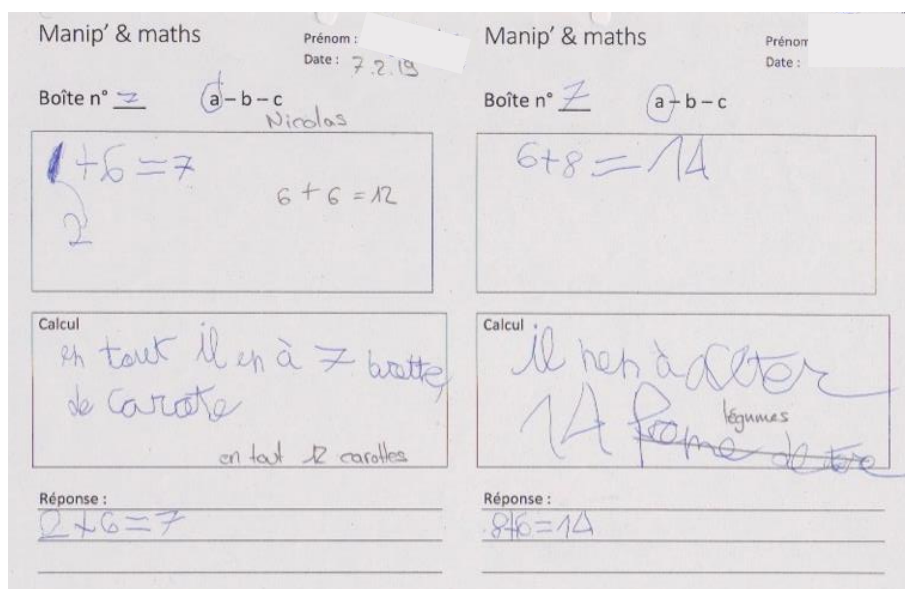 Manip' & maths
Prénom :
Date : 7.2.19
Boîte n° 7 a – b – c
Nicolas
1+6=7
6 + 6 = 12
2
Calcul
en tout il en à 7 botte
de carote
en tout 12 carottes
Réponse :
2+6=7
Manip' & maths
Prénom
Date :
Boîte n° 7 a – b – c
6+8=14
Calcul
il nen à
14 légumes
pome de tere
Réponse :
8+6=14